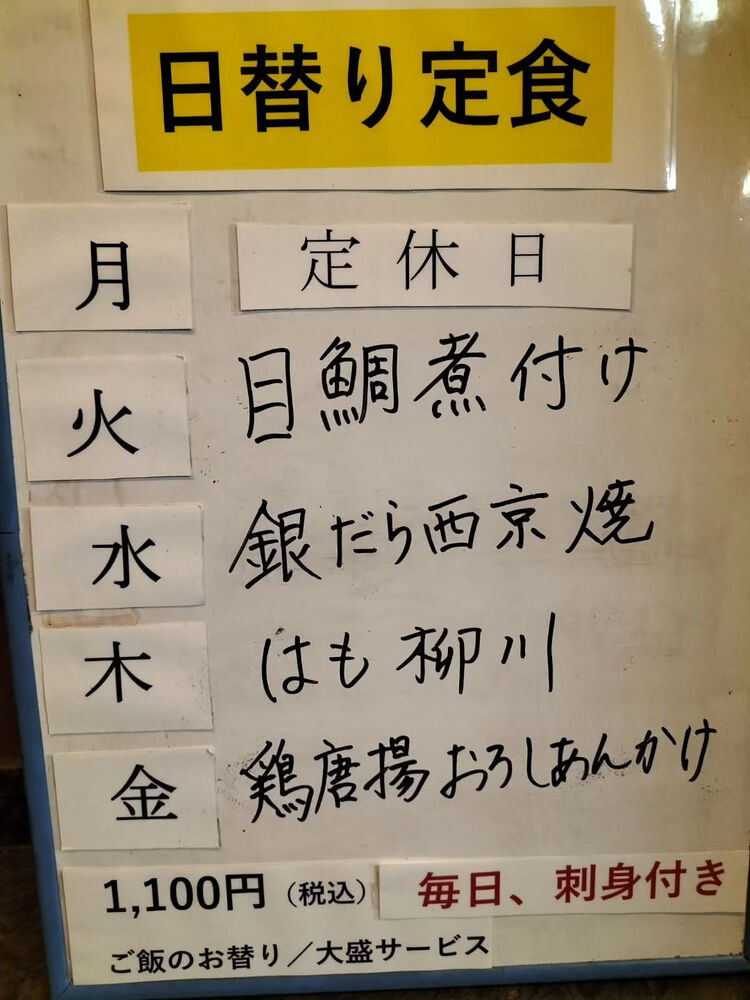 日替り定食
月 定休日
火 目鯛煮付け
水 銀だら西京焼
木 はも柳川
金 鶏唐揚おろしあんかけ
1,100円（税込） 毎日、刺身付き
ご飯のお替り／大盛サービス